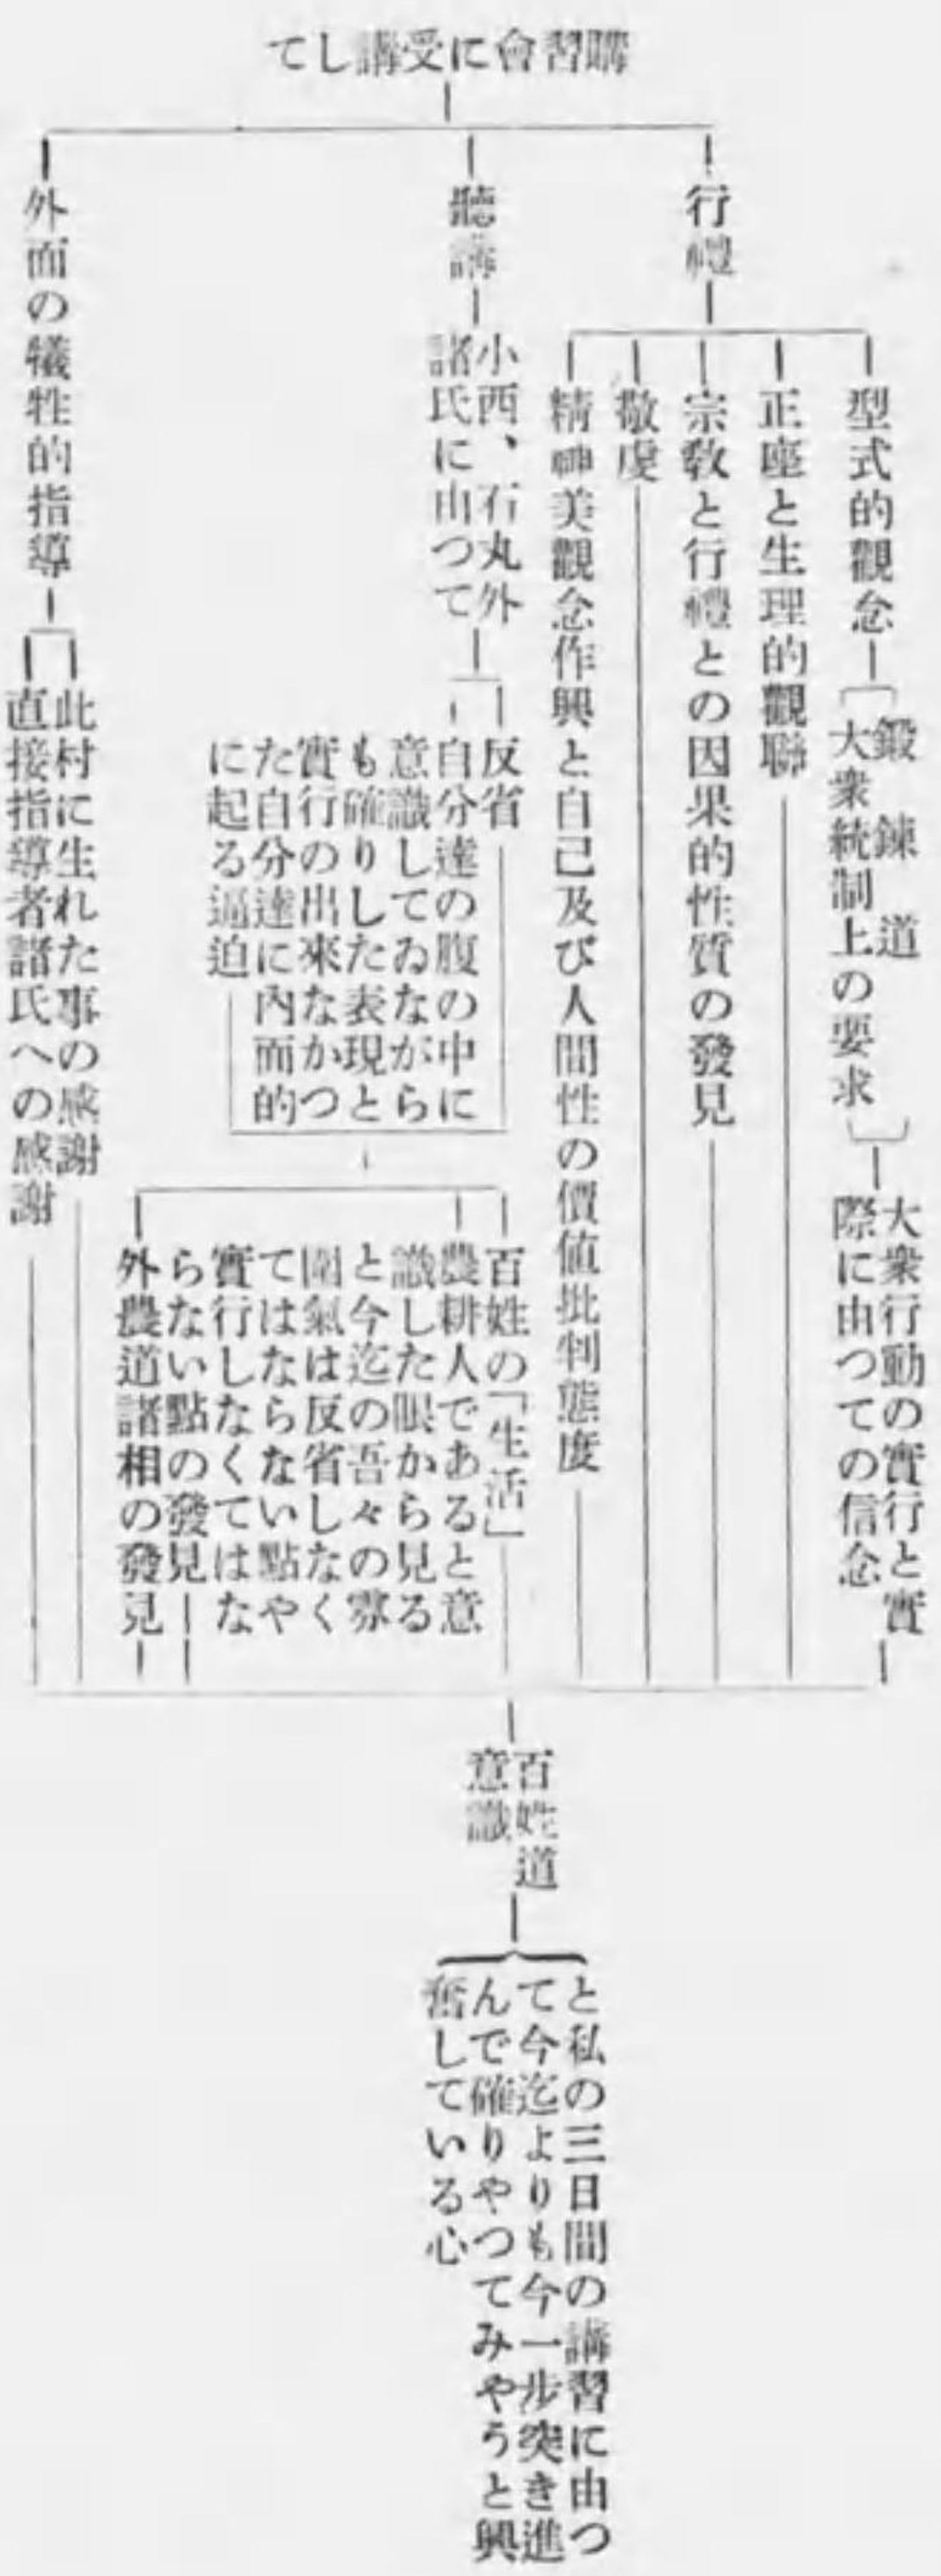 購習會に受講して
行禮
型式的觀念
鍛錬道
大衆統制上の要求
大衆行動の實行と實
際に由つての信念
正座と生理的觀聯
宗敎と行禮との因果的性質の發見
敬虔
精神美觀念作興と自己及び人間性の價値批判態度
聽講
小西、石丸外
諸氏に由つて
反省
自分達の腹の中に
意識してゐながら
も確りした表現と
實行の出來なかつ
た自分達に內面的
に起る逼迫
百姓の「生活」
農耕人であると意
識した眼から見る
と今迄の吾々の雰
圍氣は反省しなく
てはならない點や
實行しなくてはな
らない點の發見
外農道諸相の發見
外面の犠牲的指導
此村に生れた事の感謝
直接指導者諸氏への感謝
百姓道
意識
と私の三日間の講習に由つ
て今迄よりも今一步突き進
んで確りやつてみやうと興
奮している心